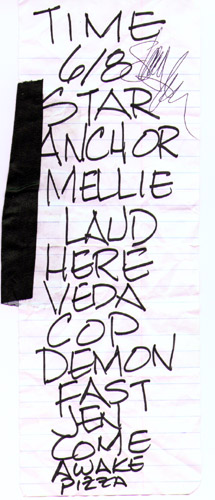 TIME
6/8
STAR
ANCHOR
MELLIE
LAUD
HERE
VEDA
COP
DEMON
FAST
JEN
COME
AWAKE
PIZZA